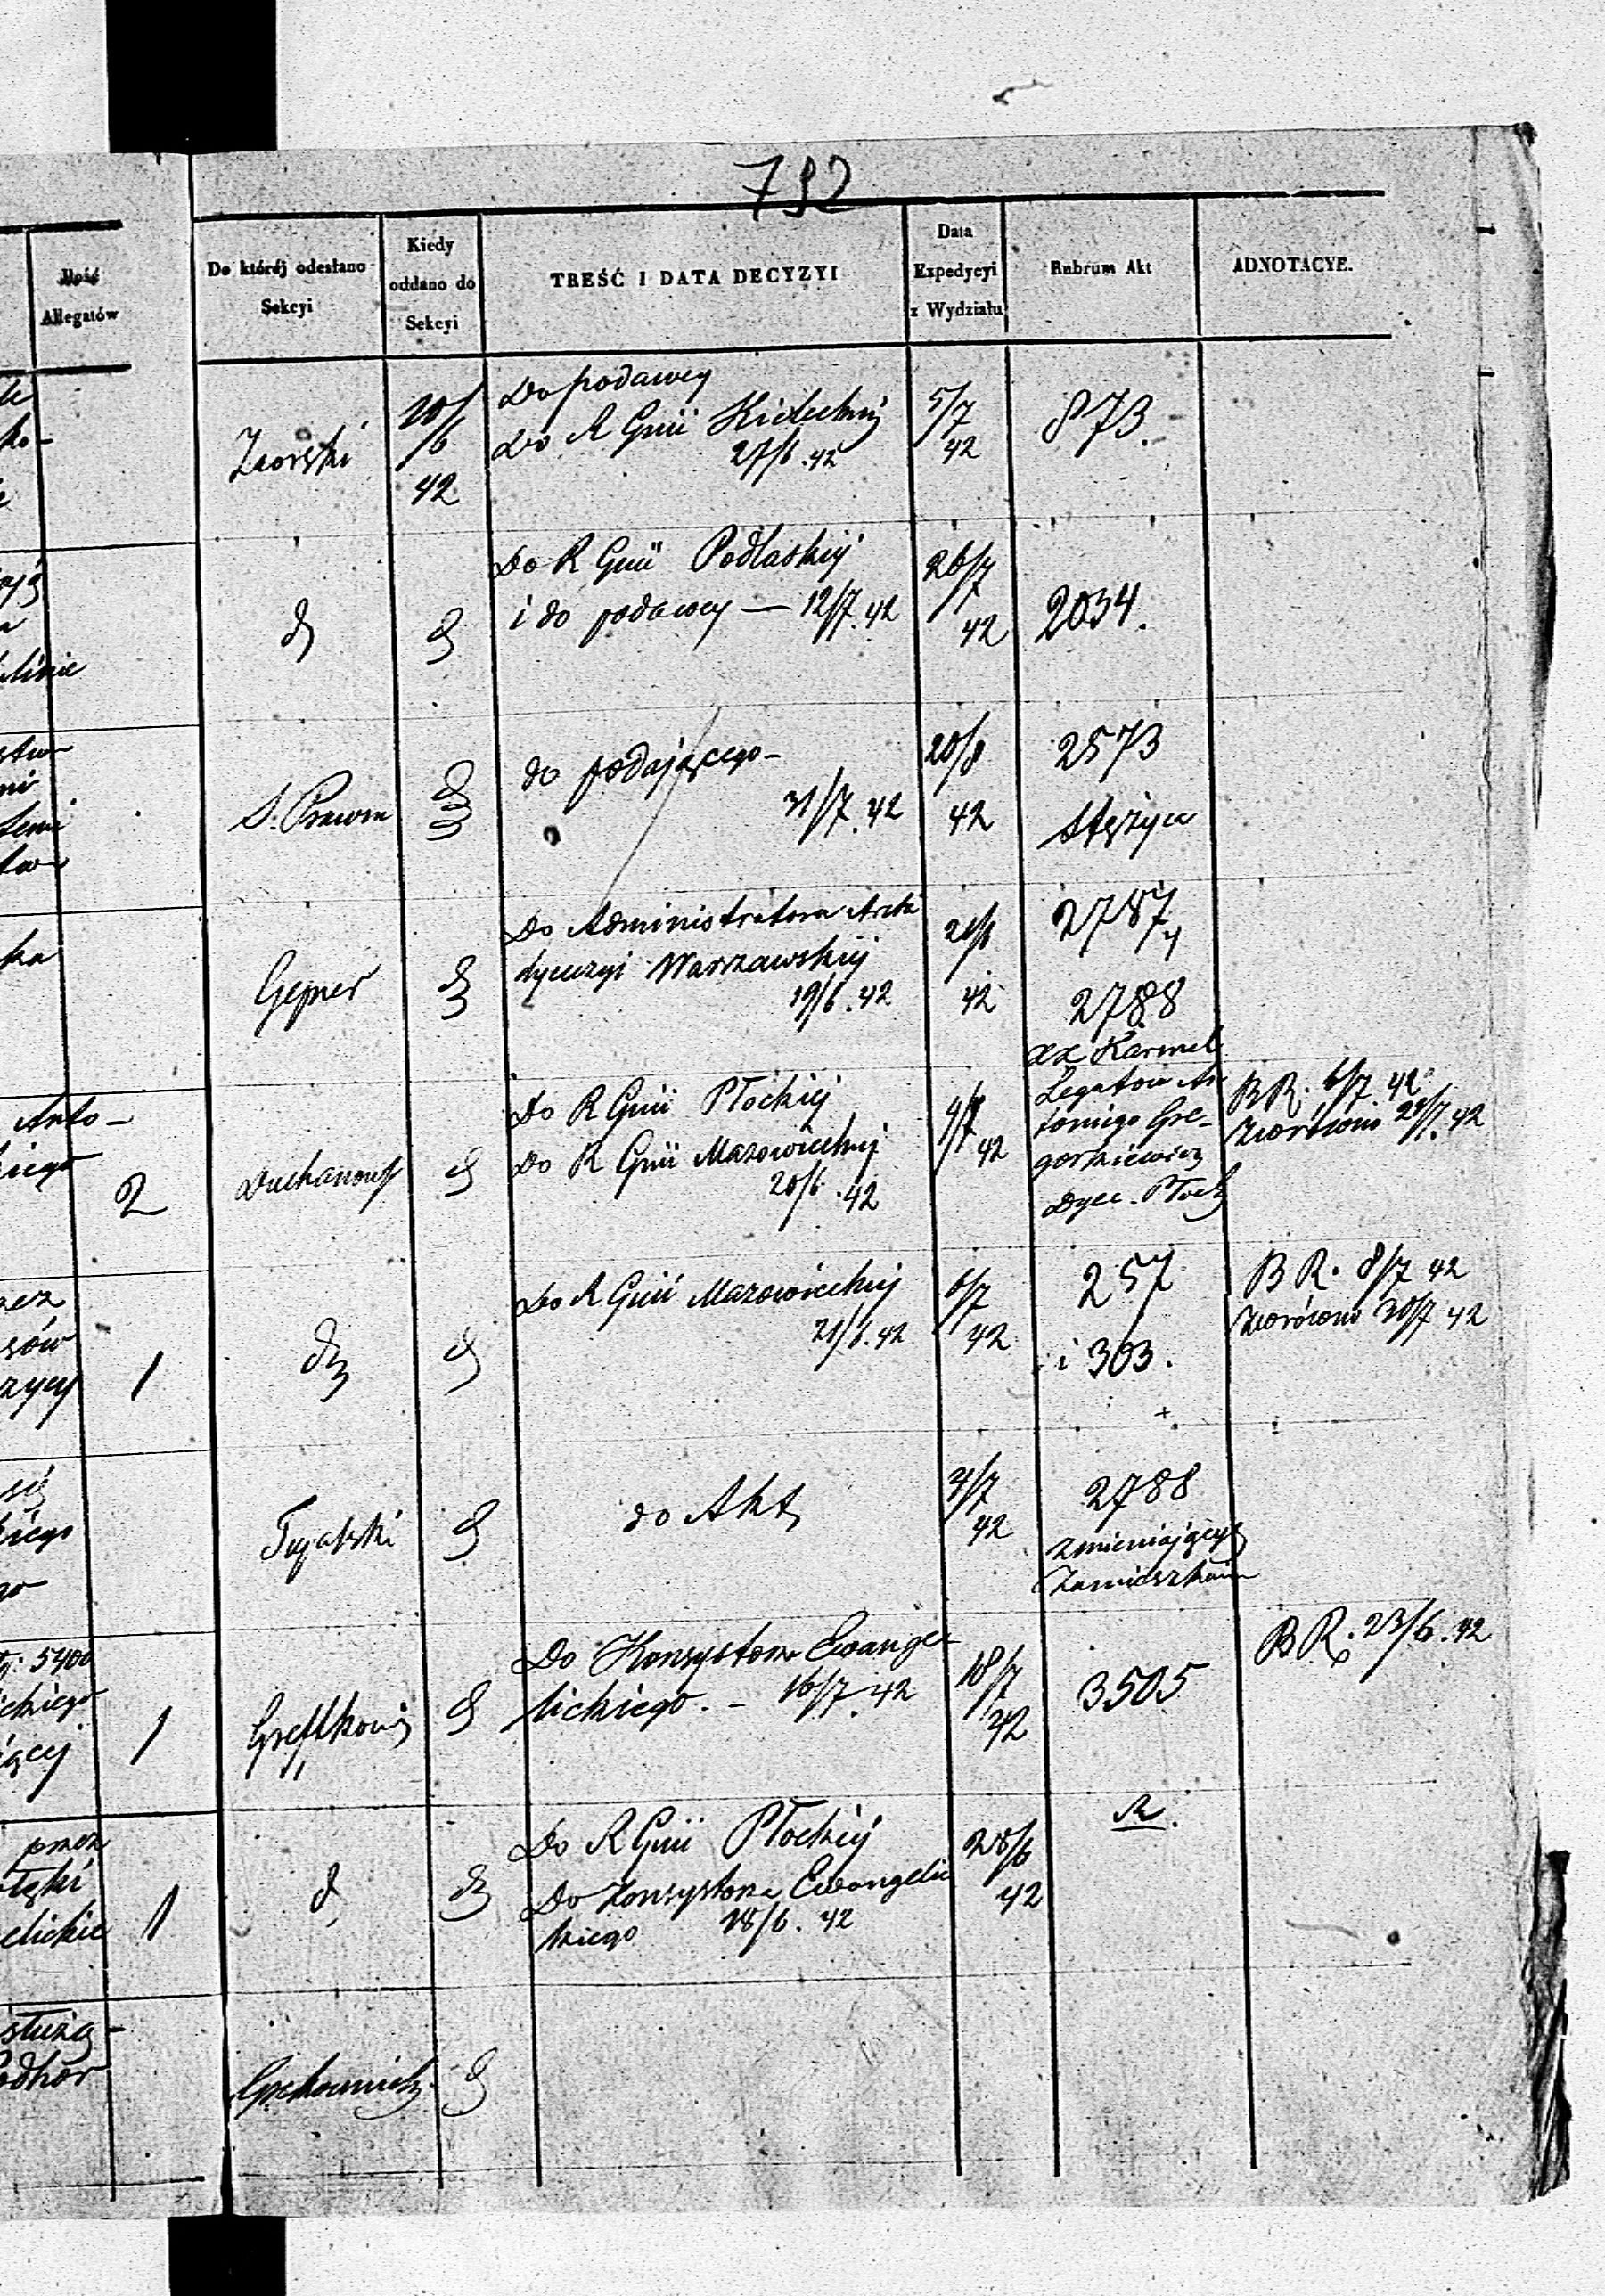 792
Ilość
Allegatów
Do któréj odesłano
Sekcyi
Kiedy
oddano do
Sekcyi
TREŚĆ I DATA DECYZYI
Data
Expedycyi
z Wydziału
Rubrum Akt
ADNOTACYE.
Zaorski
20/
/6
42
Do podawcy
Do R Gnii Kieleckiej
27/6.42
5/7
42
873.
Do R Gnii Podlaskiej
i do podawcy — 12/7.42
26/7
42
2034.
linie
S. Prawna
do podającego –
31/7.42
20/8
42
2573
Stężyca
Gejner
Do Administratora Archi
dyecezyi Warszawskiej
19/6.42
21/6
42
2787
2788
XX Karmel
Anto –
kiego
2
Duchanows
Do R Gnii Płockiej
Do R Gnii Mazowieckiej
20/6.42
4/7
42
Legatów An
toniego Gre-
gorkiewicz
Dyec. Płock
BR. 6/7.42
Zwrócono 29/7.42
sów
rzycy
1
Do R Gnii Mazowieckiej
21/6.42
6/7
42
257
i 303.
BR. 8/7 42
Zwrócono 30/7 42
się
kiego
go
do Akt
4/7
42
2788
zmieniających
Zamieszkanie
5400
ckiego
ącej
1
Do Konsystorza Ewange-
lickiego. – 16/7.42
18/7
42
3505
BR. 23/6.42
przez
elickie
1
Do R Gnii Płockiej
Do Konsystorza Ewangelic
kiego 18/6. 42
28/6
42
służą-
odhor